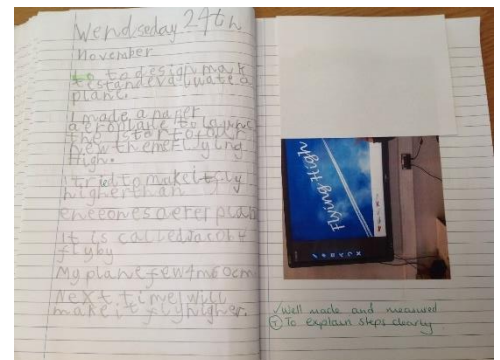 Wendseday 24th
November
to design mak
testandevaluate a
plane.
I made a paper
aeroplane to launc
the start of our
new theme Flying
High.
I Trid to make it fly
higher than
It is called
flyby
My plane few 4m 60cm
Next time I will
make it fly higher.
Flying High
✓ Well made and measured
Ⓣ To explain steps clearly